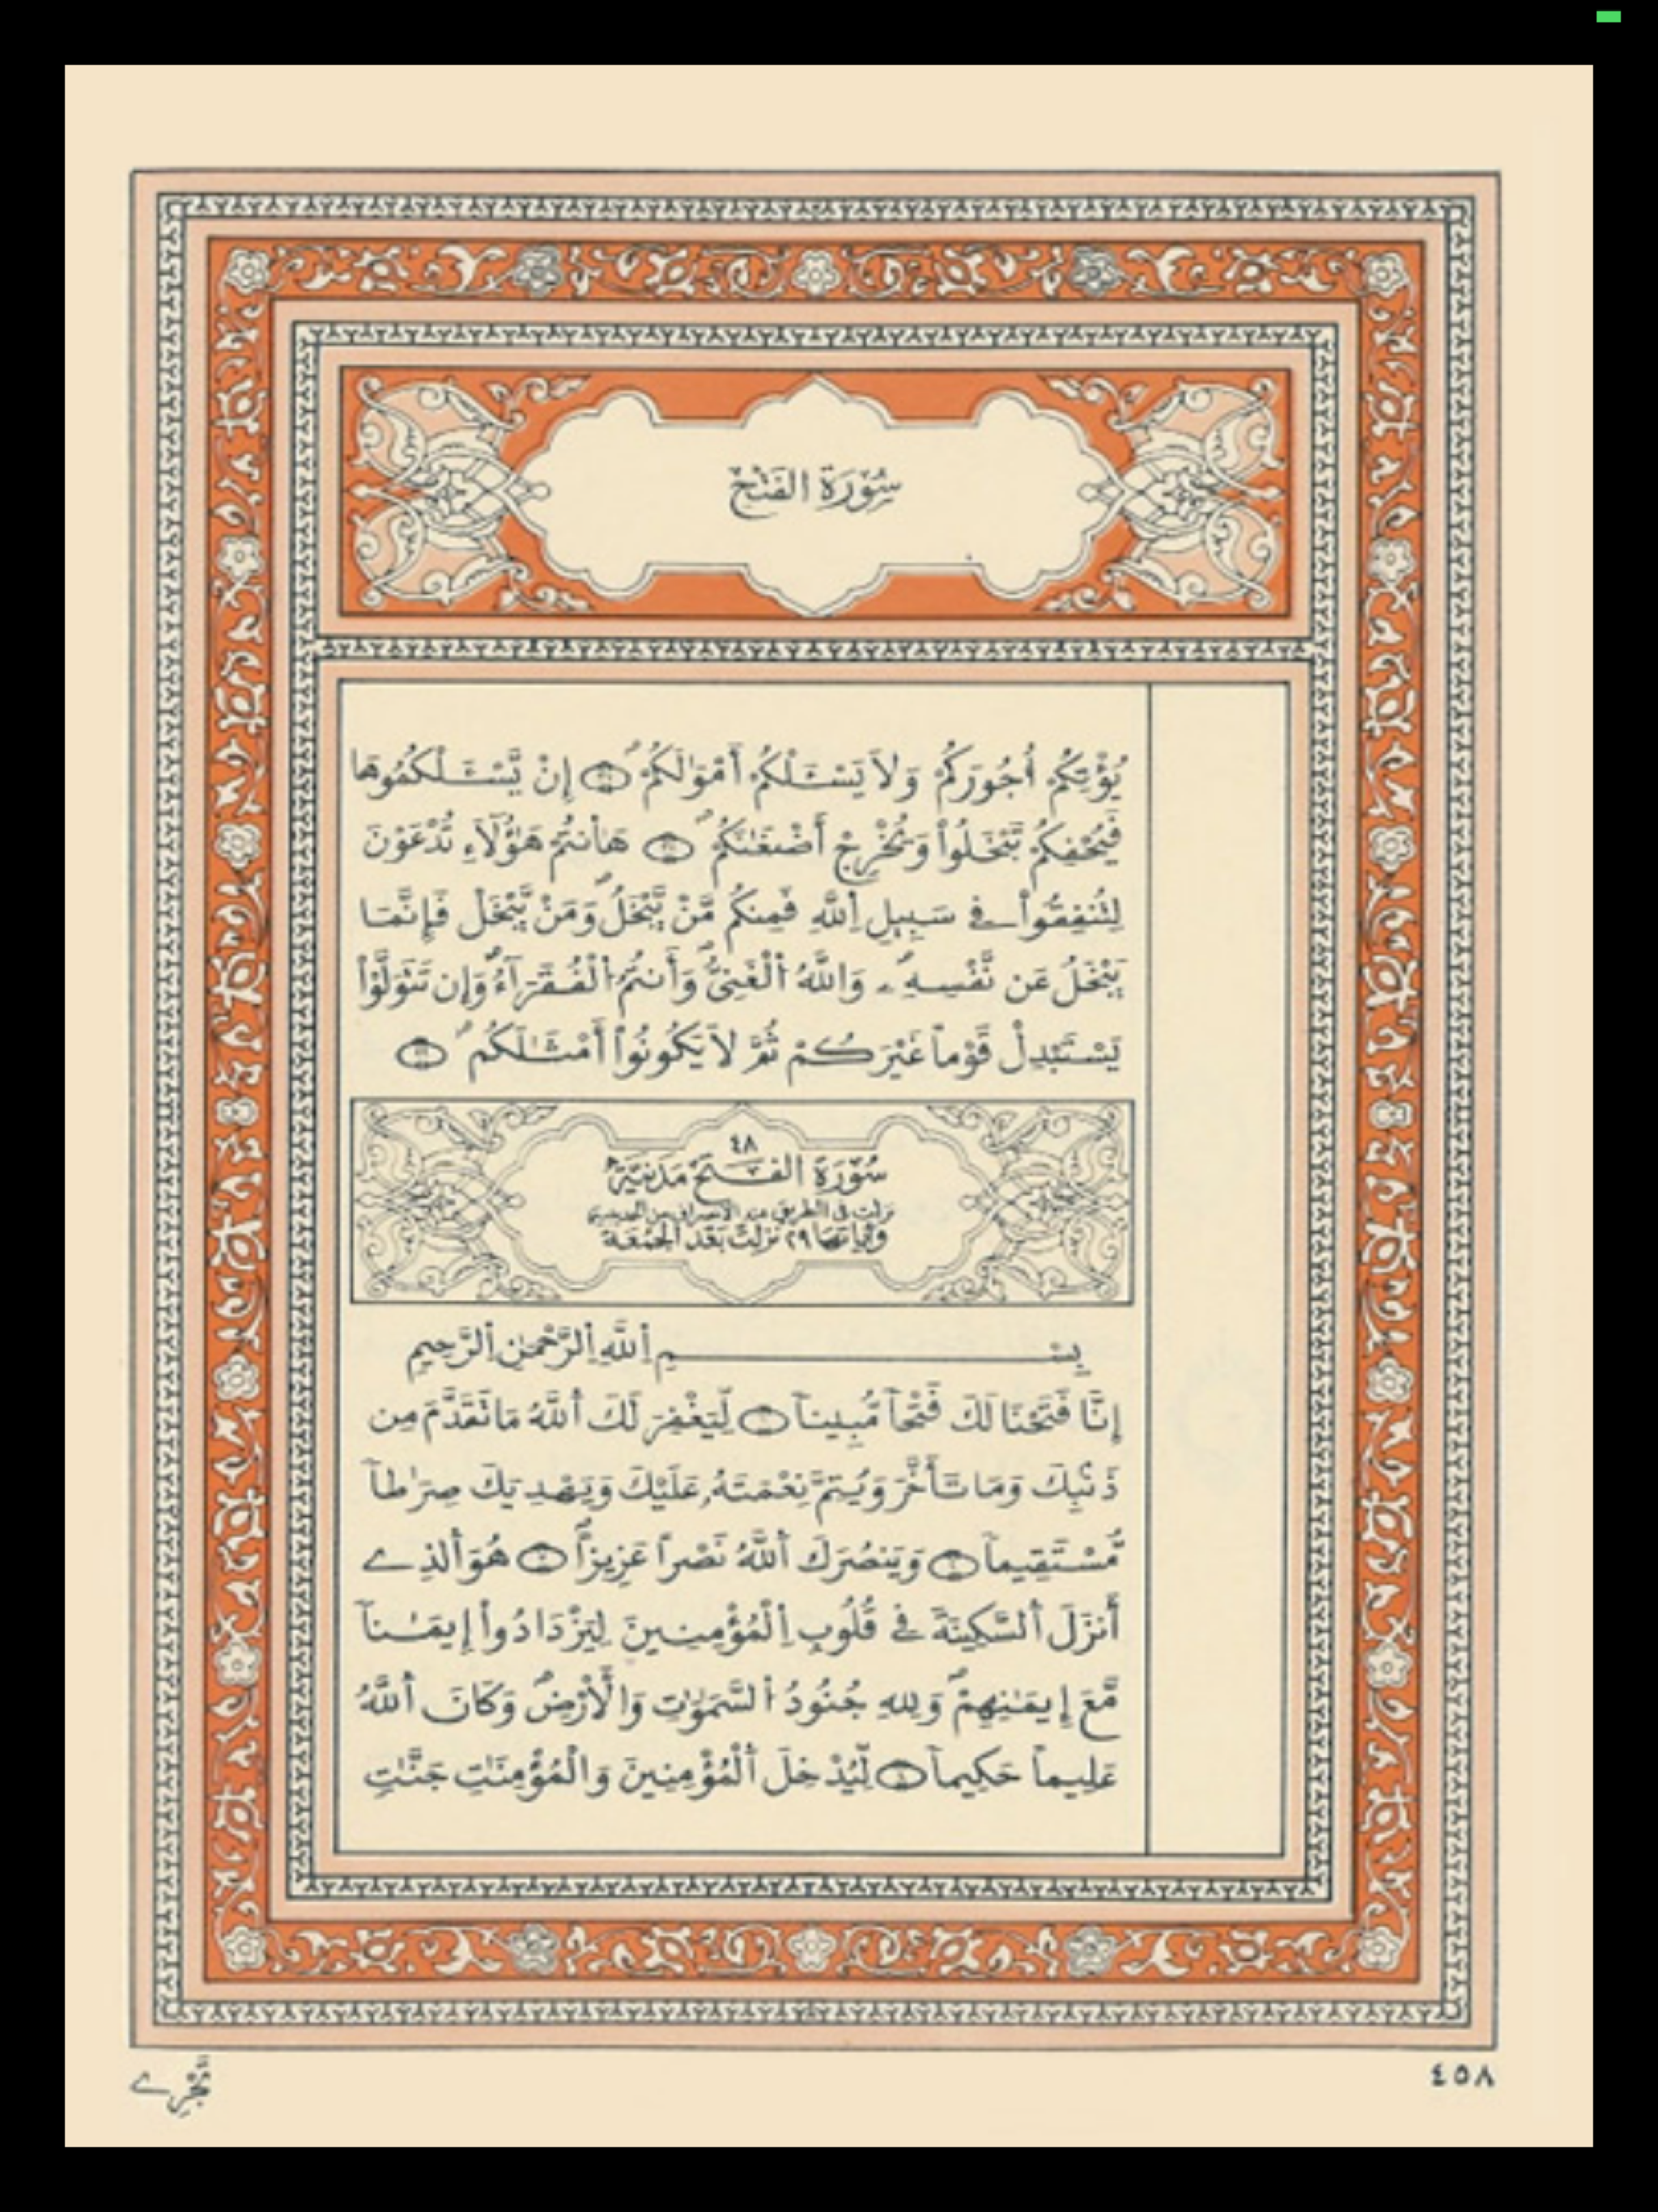 سُورَةُ الفَتْحِ
يُؤْتِكُمُ أُجُورَكُمْ وَلَا يَسْـَٔلْكُمُ أَمْوَٰلَكُمُ إِنْ يَّسْـَٔلْكُمُوهَا
فَيُحْفِكُمْ تَبْخَلُواْ وَيُخْرِجْ أَضْغَٰنَكُمْ هَٰأَنتُمْ هَٰؤُلَآءِ تُدْعَوْنَ
لِتُنفِقُواْ فِى سَبِيلِ اِ۬للَّهِ فَمِنكُم مَّنْ يَّبْخَلُ وَمَنْ يَّبْخَلْ فَإِنَّمَا
يَبْخَلُ عَن نَّفْسِهِۦ وَاللَّهُ اُ۬لْغَنِىُّ وَأَنتُمُ اُ۬لْفُقَرَآءُ وَإِن تَتَوَلَّوْاْ
يَسْتَبْدِلْ قَوْماً غَيْرَكُمْ ثُمَّ لَا يَكُونُواْ أَمْثَٰلَكُم
٤٨
سُورَةُ الفَتْحِ مَدَنِيَّةٌ
نزلت فى الطريق عند الانصراف من الحديبية
وآياتها ٢٩ نزلت بعد الجمعة
بِسْمِ اِ۬للَّهِ اِ۬لرَّحْمَٰنِ اِ۬لرَّحِيمِ
إِنَّا فَتَحْنَا لَكَ فَتْحاً مُّبِيناً ١ لِّيَغْفِرَ لَكَ اَ۬للَّهُ مَا تَقَدَّمَ مِن
ذَنۢبِكَ وَمَا تَأَخَّرَ وَيُتِمَّ نِعْمَتَهُۥ عَلَيْكَ وَيَهْدِيَكَ صِرَٰطاً
مُّسْتَقِيماً ٢ وَيَنصُرَكَ اَ۬للَّهُ نَصْراً عَزِيزاً ٣ هُوَ اَ۬لذِے
أَنزَلَ اَ۬لسَّكِينَةَ فِے قُلُوبِ اِ۬لْمُؤْمِنِينَ لِيَزْدَادُواْ إِيمَٰناً
مَّعَ إِيمَٰنِهِمْ وَلِلهِ جُنُودُ اُ۬لسَّمَٰوَٰتِ وَالْأَرْضِ وَكَانَ اَ۬للَّهُ
عَلِيماً حَكِيماً ٤ لِّيُدْخِلَ اَ۬لْمُؤْمِنِينَ وَالْمُؤْمِنَٰتِ جَنَّٰتٍ
٤٥٨
تَجْرِے